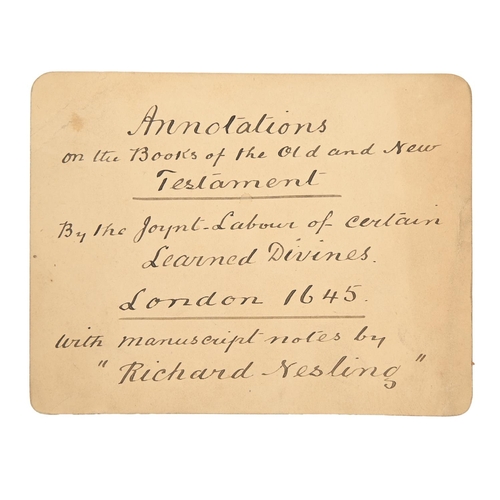 Annotations
on the Books of the Old and New
Testament
By the Joynt-Labour of certain
Learned Divines.
London 1645.
With manuscript notes by
"Richard Nesling"